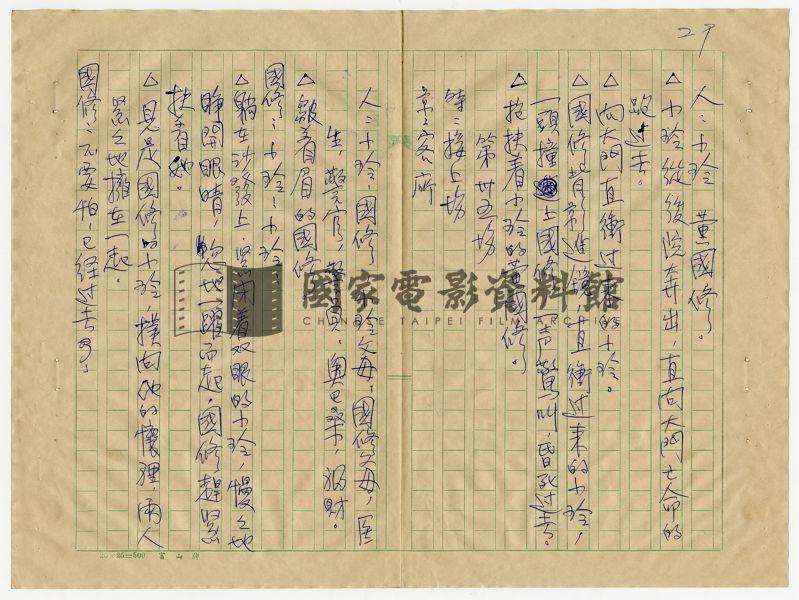 29
人：小玲、黃國修。
△小玲從後院奔出，直向大門亡命的
跑过去。
△向大門直衝过來的小玲。
△國修背景進鏡，直衝过来的小玲，
一頭撞上國修，一声驚叫，昏死过去。
△抱扶着小玲的黃國修。
第卅五場
時：接上場
景：客廳
人：小玲，國修，小玲父母，國修父母，医
生，警官，警員，奧巴桑，旺財。
△皺着眉的國修。
國修：小玲！小玲！
△躺在沙發上，緊闭着双眼的小玲，慢之地
睁開眼睛，地一躍而起，國修趕緊
扶着她。
△見是國修的小玲，撲向他的懷裡，兩人
緊之地擁在一起。
國修：不要怕，已经过去了。
國家電影資料館
CHINESE TAIPEI FILM ARCHIVE
25×25=500 富山牌